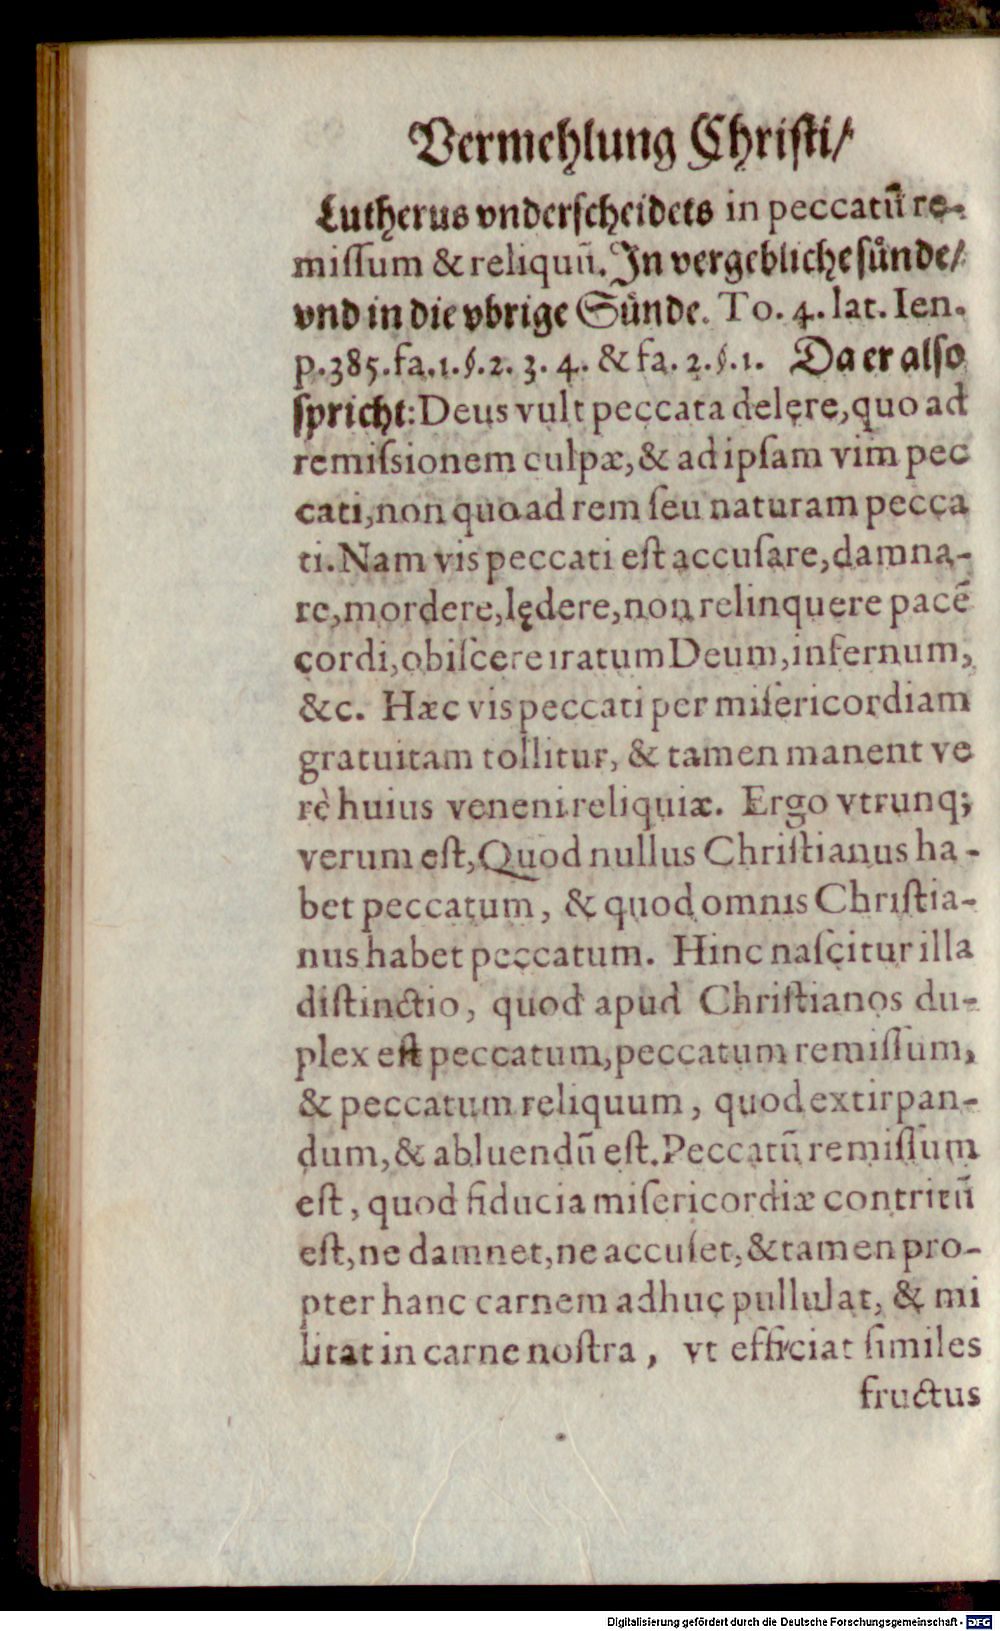 Vermehlung Christi/
Lutherus vnderscheidets in peccatū re-
miſſum & reliquū. In vergebliche sůnde/
vnd in die vbrige Sůnde. To. 4. lat. Ien.
p. 385. fa. 1. §. 2. 3. 4. & fa. 2. §. 1. Da er also
spricht: Deus vult peccata delere, quo ad
remiſsionem culpæ, & ad ipſam vim pec
cati, non quo ad rem ſeu naturam pecca
ti. Nam vis peccati eſt accuſare, damna-
re, mordere, lędere, non relinquere pacē
cordi, obiſcere iratum Deum, infernum,
&c. Hæc vis peccati per miſericordiam
gratuitam tollitur, & tamen manent ve
rè huius veneni reliquiæ. Ergo vtrunq;
verum eſt, Quod nullus Chriſtianus ha-
bet peccatum, & quod omnis Chriſtia-
nus habet peccatum. Hinc naſcitur illa
diſtinctio, quod apud Chriſtianos du-
plex eſt peccatum, peccatum remiſſum,
& peccatum reliquum, quod extirpan-
dum, & abluendū eſt. Peccatū remiſſum
eſt, quod fiducia miſericordiæ contritū
eſt, ne damnet, ne accuſet, & tamen pro-
pter hanc carnem adhuc pullulat, & mi
litat in carne noſtra, vt efficiat ſimiles
fructus
Digitalisierung gefördert durch die Deutsche Forschungsgemeinschaft - DFG